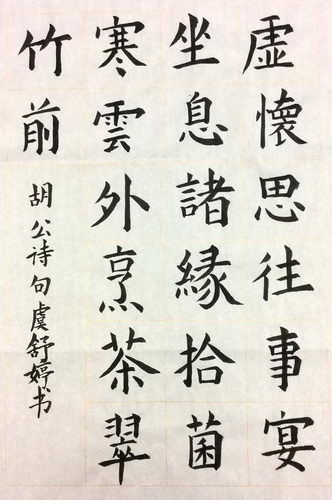 虚懷思往事宴
坐息諸緣拾菌
寒雲外烹茶翠
竹前
胡公诗句虞舒婷书